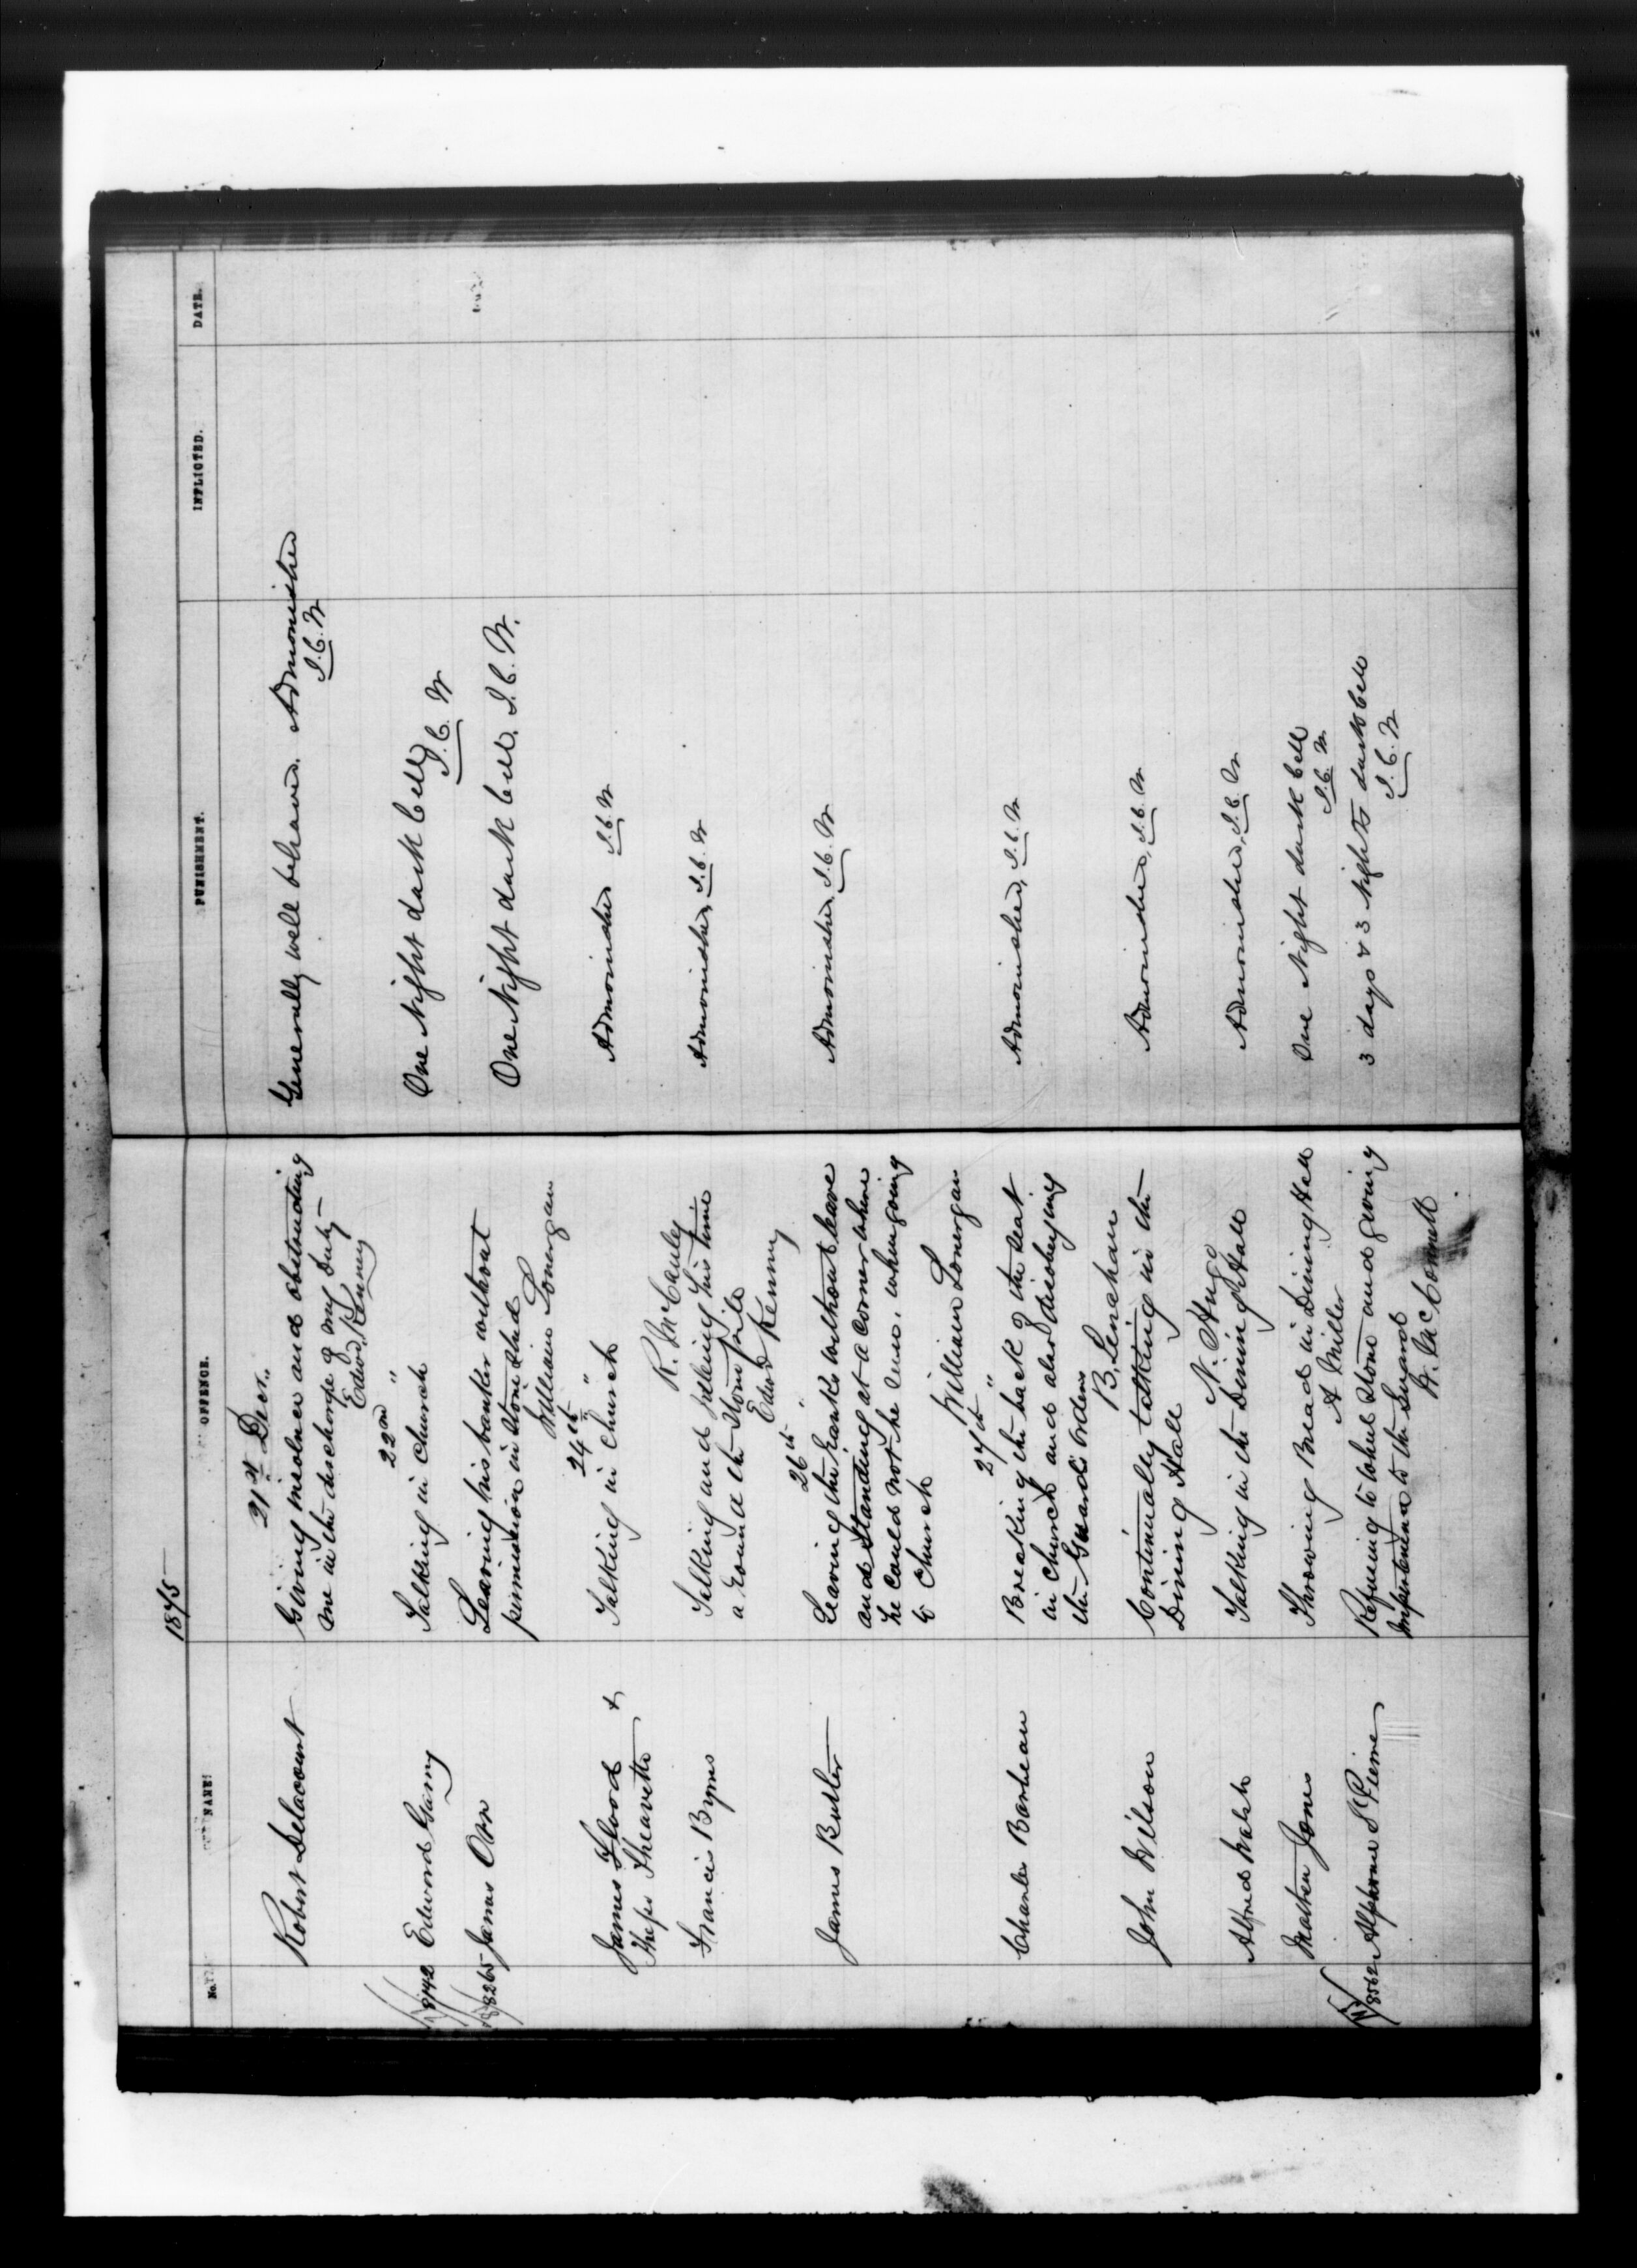 1875
No. NAME. OFFENCE. PUNISHMENT. INFLICTED. DATE.
21st Decr.
Robert Delacourt Giving insolence and obstructing Generally well behaved. Admonished
me in the discharge of my Duty J.C.W
Edwd Kenny
22nd "
8142 Edward Garry Talking in Church One Night dark Cell J.C.W
8265 James Orr Leaving his banker without One Night dark Cell, J.C.W.
permission in Stone Shed
William Lonergan
24th "
James Flood & Talking in Church Admonished J.C.W
Theavette
R. McCauley
Francis Byrnes Talking and idling his time Admonished, J.C.W
around the Stone pile
Edwd Kenny
26th "
James Butler Leaving the Ranks without leave Admonished, J.C.W
and Standing at a corner where
he could not be seen, when going
to Church
William Lonergan
27th "
Charles Barbeau Breaking the back of the seat Admonished, J.C.W
in Church and also disobeying
the Guard's orders
B. Lenehan
John Wilson Continually talking in the Admonished, J.C.W
Dining Hall
N. Hugo
Alfred Walsh Talking in the Dining Hall Admonished, J.C.W
Mathew Jones Throwing Bread in Dining Hall One Night dark Cell
A Miller J.C.W
8562 Alphonse St Pierre Refusing to wheel Stone and giving 3 days & 3 Nights dark Cell
Impertinence to the Guard J.C.W
H. McConnell